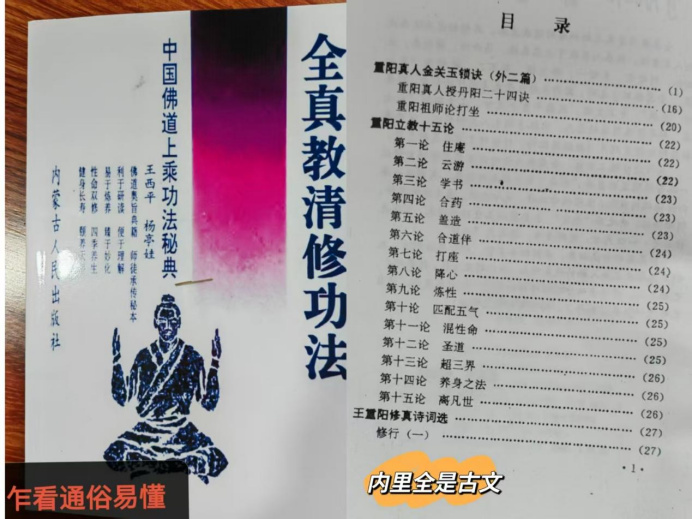 全真教清修功法
中国佛道上乘功法秘典
王西平 杨亭姓
佛道奥旨典籍 师徒承传秘本
利于研读 便于理解
易于炼养 臻于妙化
性命双修 四季养生
健身长寿
内蒙古人民出版社
乍看通俗易懂
目录
重阳真人金关玉锁诀(外二篇)……(1)
重阳真人授丹阳二十四诀……(16)
重阳祖师论打坐……(20)
重阳立教十五论……(22)
第一论 住庵……(22)
第二论 云游……(22)
第三论 学书……(23)
第四论 合药……(23)
第五论 盖造……(23)
第六论 合道伴……(24)
第七论 打座……(24)
第八论 降心……(24)
第九论 炼性……(25)
第十论 匹配五气……(25)
第十一论 混性命……(25)
第十二论 圣道……(25)
第十三论 超三界……(26)
第十四论 养身之法……(26)
第十五论 离凡世……(26)
王重阳修真诗词选……(27)
修行(一)……(27)
·1·
内里全是古文